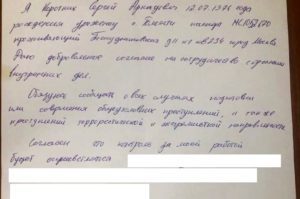 Я Коротких Сергей Аркадьевич 12.07.1974 года
рождения уроженец г. паспорт МС1087670
проживающий город Москва
Даю добровольное согласие на сотрудничество с органами
внутренних дел.
Обязуюсь сообщать о всех случаях подготовки
или совершения общеуголовных преступлений, а также
преступлений террористической и направленности
Согласен что контроль за моей работой
будет осуществляться